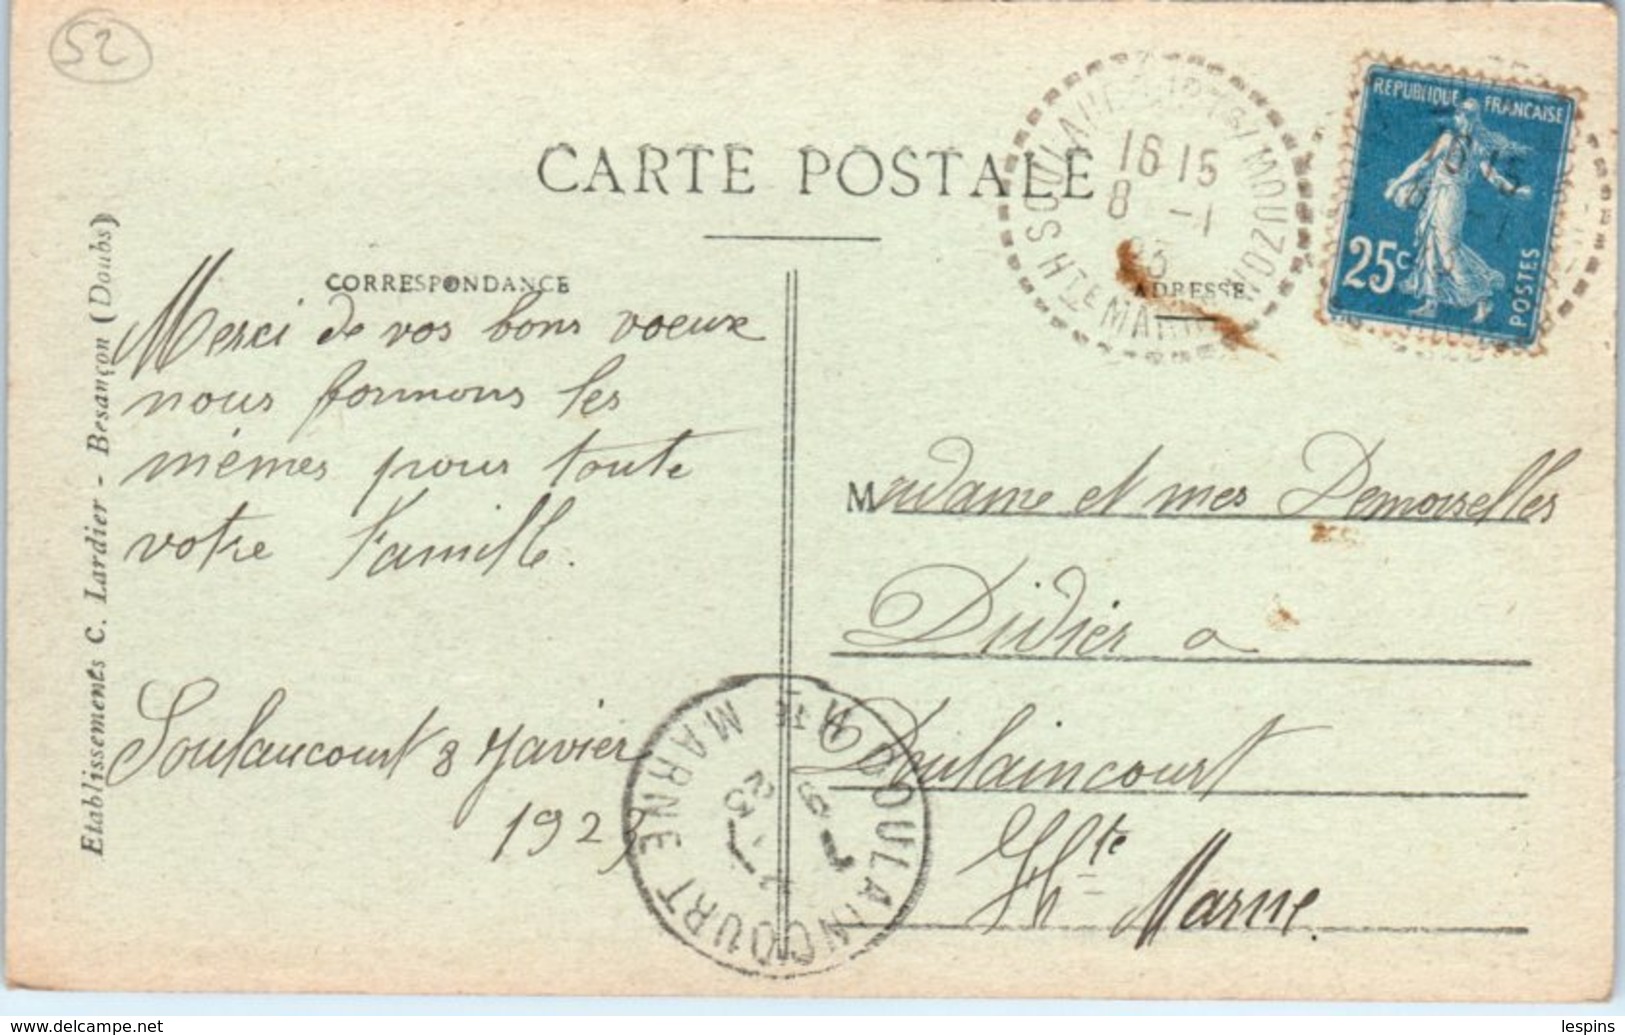 52
CARTE POSTALE
REPUBLIQUE FRANCAISE
25c
POSTES
SOULAUCOURT S/ MOUZON
16 15
8 -1
23
HTE MARNE
CORRESPONDANCE
ADRESSE
Merci de vos bons voeux
nous formons les
mêmes pour toute
votre Famille.
Soulaucourt 8 Javier
1923
Madame et mes Demoiselles
Didier a
Doulaincourt
Hte Marne.
DOULAINCOURT
Hte MARNE
Etablissements C. Lardier - Besançon (Doubs)
www.delcampe.net
lespins